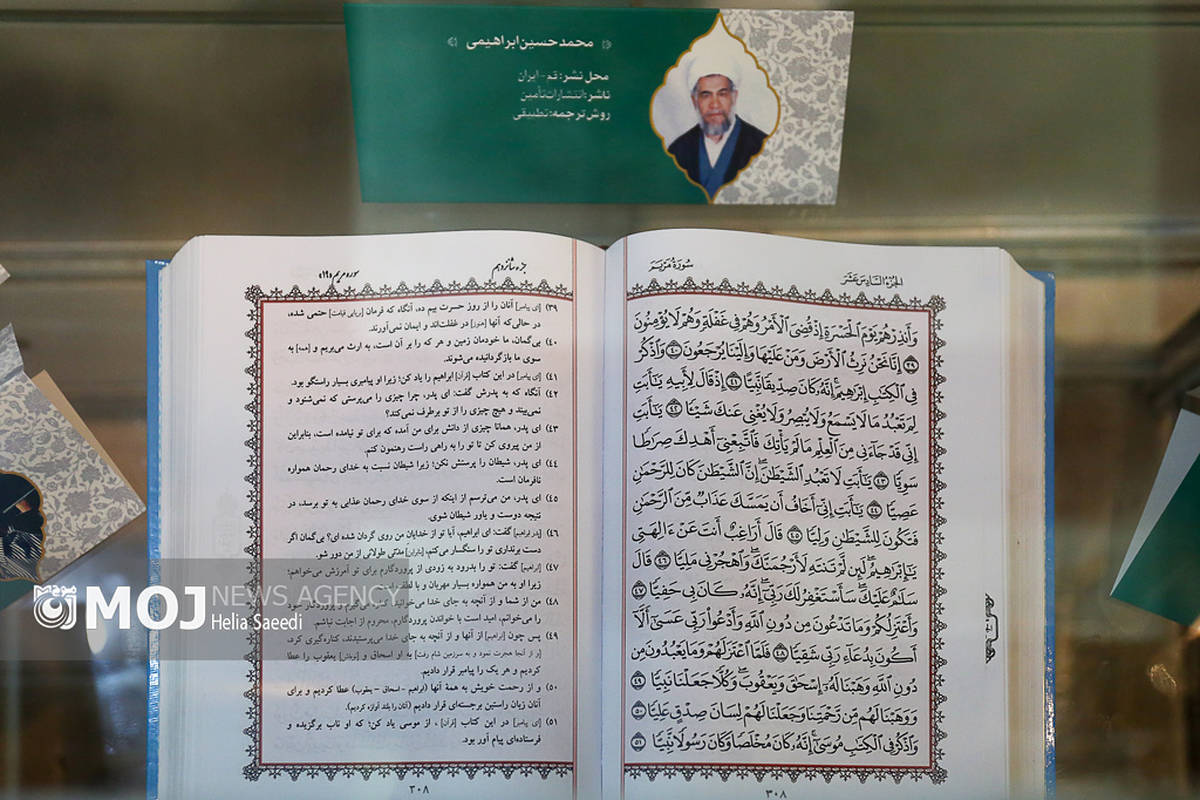 محمدحسین ابراهیمی
محل نشر: قم-ایران
ناشر: انتشارات تأمین
روش ترجمه: تطبیقی
الجزء السادس عشر
سورة مریم
وَأَنذِرْهُمْ يَوْمَ ٱلْحَسْرَةِ إِذْ قُضِىَ ٱلْأَمْرُ وَهُمْ فِى غَفْلَةٍ وَهُمْ لَا يُؤْمِنُونَ
﴿٣٩﴾ إِنَّا نَحْنُ نَرِثُ ٱلْأَرْضَ وَمَنْ عَلَيْهَا وَإِلَيْنَا يُرْجَعُونَ ﴿٤٠﴾ وَٱذْكُرْ
فِى ٱلْكِتَٰبِ إِبْرَٰهِيمَ إِنَّهُۥ كَانَ صِدِّيقًا نَّبِيًّا ﴿٤١﴾ إِذْ قَالَ لِأَبِيهِ يَٰٓأَبَتِ
لِمَ تَعْبُدُ مَا لَا يَسْمَعُ وَلَا يُبْصِرُ وَلَا يُغْنِى عَنكَ شَيْـًٔا ﴿٤٢﴾ يَٰٓأَبَتِ
إِنِّى قَدْ جَآءَنِى مِنَ ٱلْعِلْمِ مَا لَمْ يَأْتِكَ فَٱتَّبِعْنِىٓ أَهْدِكَ صِرَٰطًا
سَوِيًّا ﴿٤٣﴾ يَٰٓأَبَتِ لَا تَعْبُدِ ٱلشَّيْطَٰنَ إِنَّ ٱلشَّيْطَٰنَ كَانَ لِلرَّحْمَٰنِ
عَصِيًّا ﴿٤٤﴾ يَٰٓأَبَتِ إِنِّىٓ أَخَافُ أَن يَمَسَّكَ عَذَابٌ مِّنَ ٱلرَّحْمَٰنِ
فَتَكُونَ لِلشَّيْطَٰنِ وَلِيًّا ﴿٤٥﴾ قَالَ أَرَاغِبٌ أَنتَ عَنْ ءَالِهَتِى
يَٰٓإِبْرَٰهِيمُ لَئِن لَّمْ تَنتَهِ لَأَرْجُمَنَّكَ وَٱهْجُرْنِى مَلِيًّا ﴿٤٦﴾ قَالَ
سَلَٰمٌ عَلَيْكَ سَأَسْتَغْفِرُ لَكَ رَبِّىٓ إِنَّهُۥ كَانَ بِى حَفِيًّا ﴿٤٧﴾
وَأَعْتَزِلُكُمْ وَمَا تَدْعُونَ مِن دُونِ ٱللَّهِ وَأَدْعُوا۟ رَبِّى عَسَىٰٓ أَلَّآ
أَكُونَ بِدُعَآءِ رَبِّى شَقِيًّا ﴿٤٨﴾ فَلَمَّا ٱعْتَزَلَهُمْ وَمَا يَعْبُدُونَ مِن
دُونِ ٱللَّهِ وَهَبْنَا لَهُۥٓ إِسْحَٰقَ وَيَعْقُوبَ وَكُلًّا جَعَلْنَا نَبِيًّا ﴿٤٩﴾
وَوَهَبْنَا لَهُم مِّن رَّحْمَتِنَا وَجَعَلْنَا لَهُمْ لِسَانَ صِدْقٍ عَلِيًّا ﴿٥٠﴾
وَٱذْكُرْ فِى ٱلْكِتَٰبِ مُوسَىٰٓ إِنَّهُۥ كَانَ مُخْلَصًا وَكَانَ رَسُولًا نَّبِيًّا ﴿٥١﴾
۳۰۸
جزء شانزدهم
سوره مریم «۱۹»
۳۹) [ای پیامبر] آنان را از روز حسرت بیم ده، آنگاه که فرمان [برپایی قیامت] حتمی شده،
در حالی که آنها [هنوز] در غفلت‌اند و ایمان نمی‌آورند.
۴۰) بی‌گمان، ما خودمان زمین و هر که را بر آن است، به ارث می‌بریم و [همه] به
سوی ما بازگردانیده می‌شوند.
۴۱) در این کتاب [قرآن] ابراهیم را یاد کن؛ زیرا او پیامبری بسیار راستگو بود.
۴۲) آنگاه که به پدرش گفت: ای پدر، چرا چیزی را می‌پرستی که نمی‌شنود و
نمی‌بیند و هیچ چیزی را از تو برطرف نمی‌کند؟
۴۳) ای پدر، همانا چیزی از دانش برای من آمده که برای تو نیامده است، بنابراین
از من پیروی کن تا تو را به راهی راست رهنمون کنم.
۴۴) ای پدر، شیطان را پرستش نکن؛ زیرا شیطان نسبت به خدای رحمان همواره
نافرمان است.
۴۵) ای پدر، من می‌ترسم از اینکه از سوی خدای رحمان عذابی به تو برسد، در
نتیجه دوست و یاور شیطان شوی.
۴۶) [پدر ابراهیم] گفت: ای ابراهیم، آیا تو از خدایان من روی گردان شده ای؟ بی‌گمان اگر
دست برنداری تو را سنگسار می‌کنم، [بنابراین] مدتی طولانی از من دور شو.
۴۷) [ابراهیم] گفت: تو را بدرود به زودی از پروردگارم برای تو آمرزش می‌خواهم؛
زیرا او به من همواره بسیار مهربان و با لطف
۴۸) من از شما و از آنچه به جای خدا می‌خوانید کناره می‌گیرم و پروردگار خود
را می‌خوانم، امید است با خواندن پروردگارم، محروم از اجابت نباشم.
۴۹) پس چون [ابراهیم] از آنها و از آنچه به جای خدا می‌پرستیدند، کناره‌گیری کرد،
[و از آنجا هجرت نمود و به سرزمین شام رفت] به او اسحاق و [نوه‌اش] یعقوب را عطا
کردیم و هر یک را پیامبر قرار دادیم.
۵۰) و از رحمت خویش به همهٔ آنها (ابراهیم - اسحاق - یعقوب) عطا کردیم و برای
آنان زبان راستین برجسته‌ای قرار دادیم (آنان را بلند آوازه کردیم).
۵۱) [ای پیامبر] در این کتاب [قرآن]، از موسی یاد کن؛ که او ناب برگزیده و
فرستاده‌ای پیام آور بود.
۳۰۸
موج MOJ NEWS AGENCY
Helia Saeedi